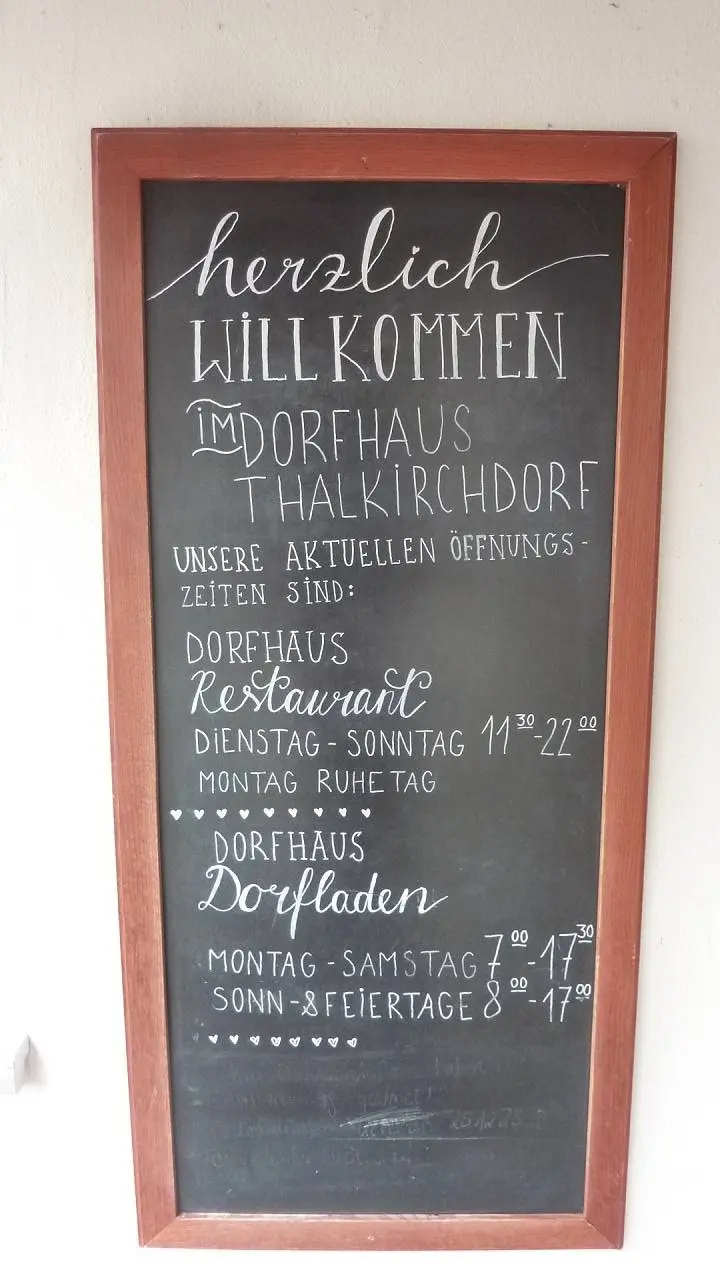 herzlich
WILLKOMMEN
IM DORFHAUS
THALKIRCHDORF
UNSERE AKTUELLEN ÖFFNUNGS-
ZEITEN SIND:
DORFHAUS
Restaurant
DIENSTAG - SONNTAG 11³⁰-22⁰⁰
MONTAG RUHETAG
DORFHAUS
Dorfladen
MONTAG - SAMSTAG 7⁰⁰-17³⁰
SONN- & FEIERTAGE 8⁰⁰-17⁰⁰